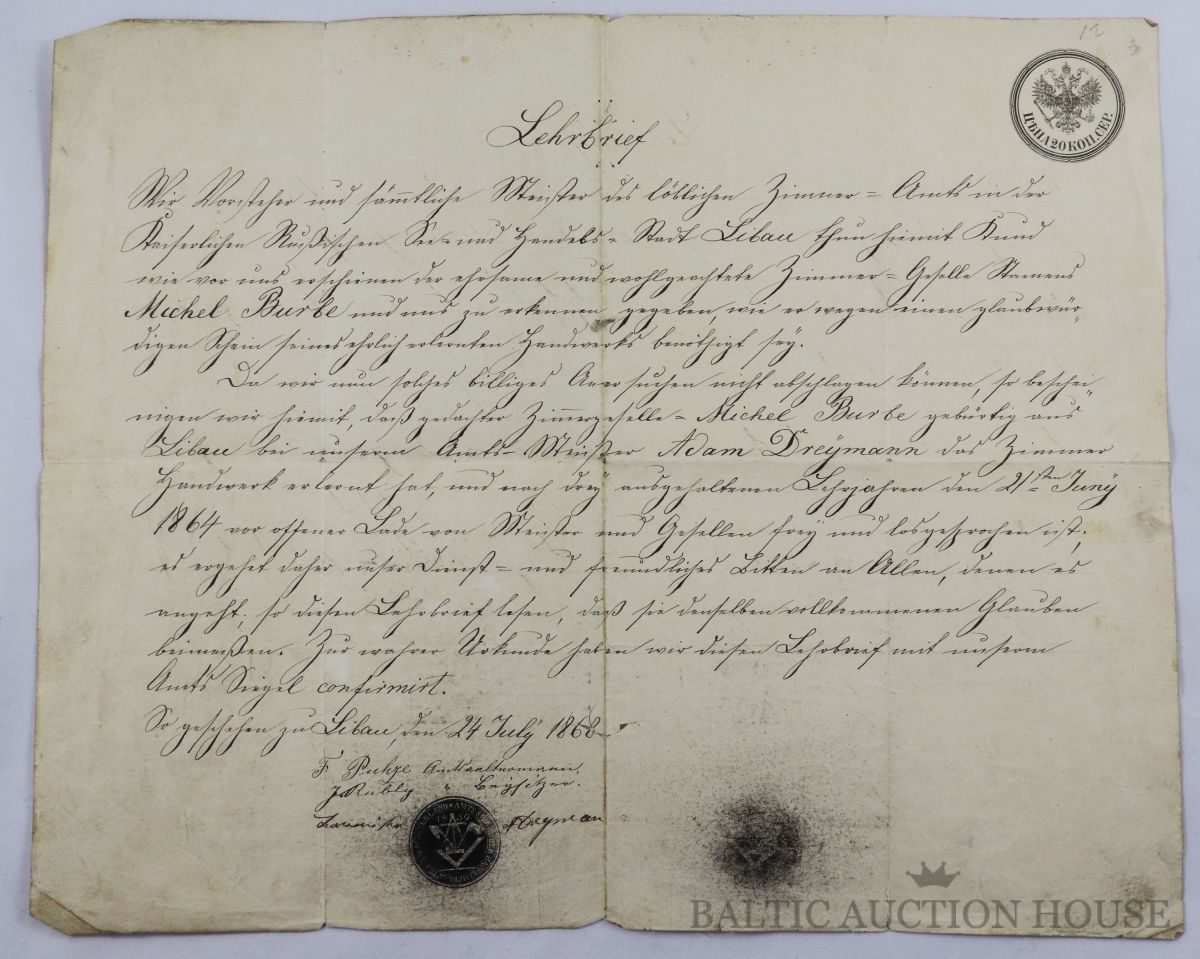 12
ЦѢНА 20 КОП. СЕР.
Lehrbrief
Wir Vorsteher und sämmtliche Meister des löblichen Zimmer = Amts in der
Kaiserlichen Rußischen See- und Handels- Stadt Libau thun hiemit Kund
wie vor uns erschienen der ehrsame und wohlgeachtete Zimmer = Geselle Namens
Michel Burbe und uns zu erkennen gegeben, wie er wegen einen glaubwür-
digen Schein seines ehrlich erlernten Handwerks benöthigt seÿ.
Da wir nun solches billiges Ansuchen nicht abschlagen können, so beschei-
nigen wir hiemit, daß gedachter Zimmergeselle - Michel Burbe gebürtig aus
Libau bei unserm Amts- Meister Adam Dreÿmann das Zimmer
Handwerk erlernt hat, und nach dreÿ ausgehaltenen Lehrjahren den 21sten Junÿ
1864 vor offener Lade von Meister und Gesellen freÿ und losgesprochen ist;
es ergehet daher unser Dienst = und freundliches Bitten an Allen, denen es
angeht, so diesen Lehrbrief lesen, daß sie denselben vollkommenen Glauben
beimeßen. Zur wahrer Urkunde haben wir diesen Lehrbrief mit unserm
Amts Siegel confirmirt.
So geschehen zu Libau, den 24 Julÿ 1868
F. Amtsaltermann.
J. " Beÿsitzer.
BALTIC AUCTION HOUSE